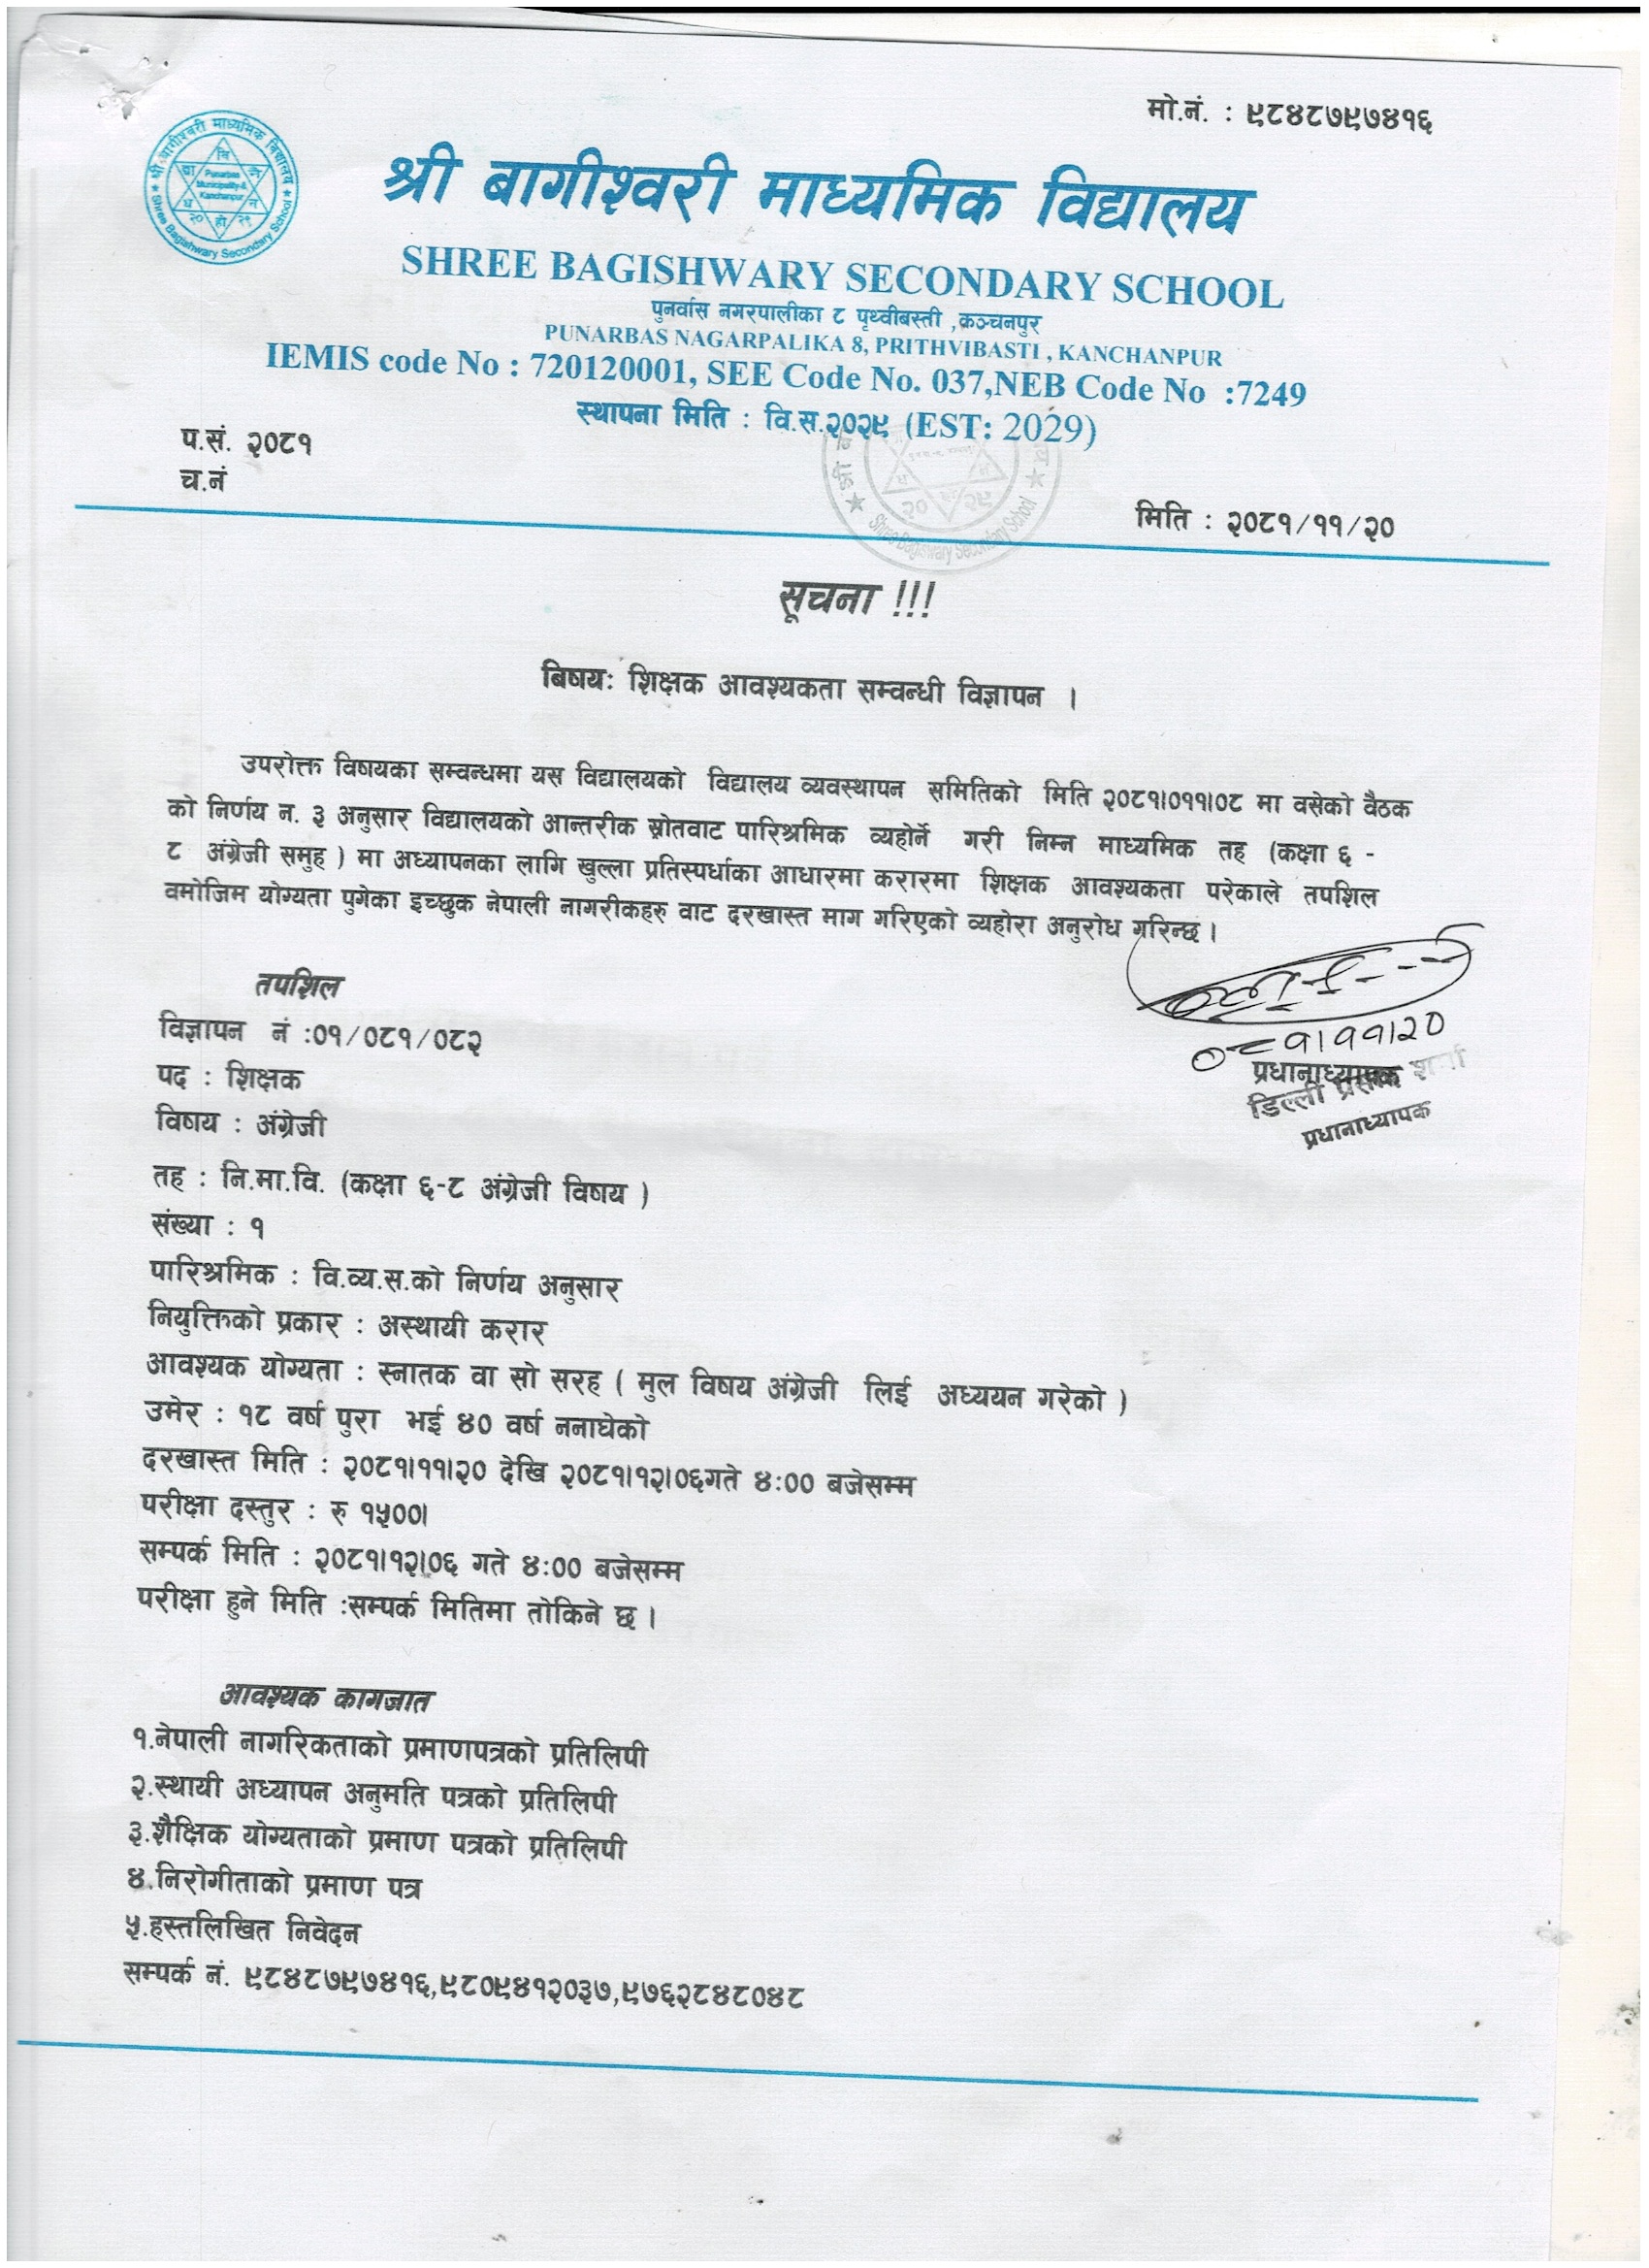 मो.नं. : ९८४८७९७४१६
श्री बागीश्वरी माध्यमिक विद्यालय
SHREE BAGISHWARY SECONDARY SCHOOL
पुनर्वास नगरपालीका ८ पृथ्वीबस्ती ,कञ्चनपुर
PUNARBAS NAGARPALIKA 8, PRITHVIBASTI , KANCHANPUR
IEMIS code No : 720120001, SEE Code No. 037,NEB Code No :7249
स्थापना मिति : वि.स.२०२९ (EST: 2029)
प.सं. २०८१
च.नं
मिति : २०८१/११/२०
सूचना !!!
बिषयः शिक्षक आवश्यकता सम्वन्धी विज्ञापन ।
उपरोक्त विषयका सम्वन्धमा यस विद्यालयको विद्यालय व्यवस्थापन समितिको मिति २०८१।०११।०८ मा वसेको वैठक
को निर्णय न. ३ अनुसार विद्यालयको आन्तरीक स्रोतवाट पारिश्रमिक व्यहोर्ने गरी निम्न माध्यमिक तह (कक्षा ६ -
८ अंग्रेजी समुह ) मा अध्यापनका लागि खुल्ला प्रतिस्पर्धाका आधारमा करारमा शिक्षक आवश्यकता परेकाले तपशिल
वमोजिम योग्यता पुगेका इच्छुक नेपाली नागरीकहरु वाट दरखास्त माग गरिएको व्यहोरा अनुरोध गरिन्छ ।
तपशिल
विज्ञापन नं :०१/०८१/०८२
पद : शिक्षक
विषय : अंग्रेजी
तह : नि.मा.वि. (कक्षा ६-८ अंग्रेजी विषय )
संख्या : १
पारिश्रमिक : वि.व्य.स.को निर्णय अनुसार
नियुक्तिको प्रकार : अस्थायी करार
आवश्यक योग्यता : स्नातक वा सो सरह ( मुल विषय अंग्रेजी लिई अध्ययन गरेको )
उमेर : १८ वर्ष पुरा भई ४० वर्ष ननाघेको
दरखास्त मिति : २०८१।११।२० देखि २०८१।१२।०६गते ४:०० बजेसम्म
परीक्षा दस्तुर : रु १५००।
सम्पर्क मिति : २०८१।१२।०६ गते ४:०० बजेसम्म
परीक्षा हुने मिति :सम्पर्क मितिमा तोकिने छ ।
प्रधानाध्यापक
डिल्ली प्रसाद शर्मा
प्रधानाध्यापक
आवश्यक कागजात
१.नेपाली नागरिकताको प्रमाणपत्रको प्रतिलिपी
२.स्थायी अध्यापन अनुमति पत्रको प्रतिलिपी
३.शैक्षिक योग्यताको प्रमाण पत्रको प्रतिलिपी
४.निरोगीताको प्रमाण पत्र
५.हस्तलिखित निवेदन
सम्पर्क नं. ९८४८७९७४१६,९८०९४१२०३७,९७६२८४८०४८